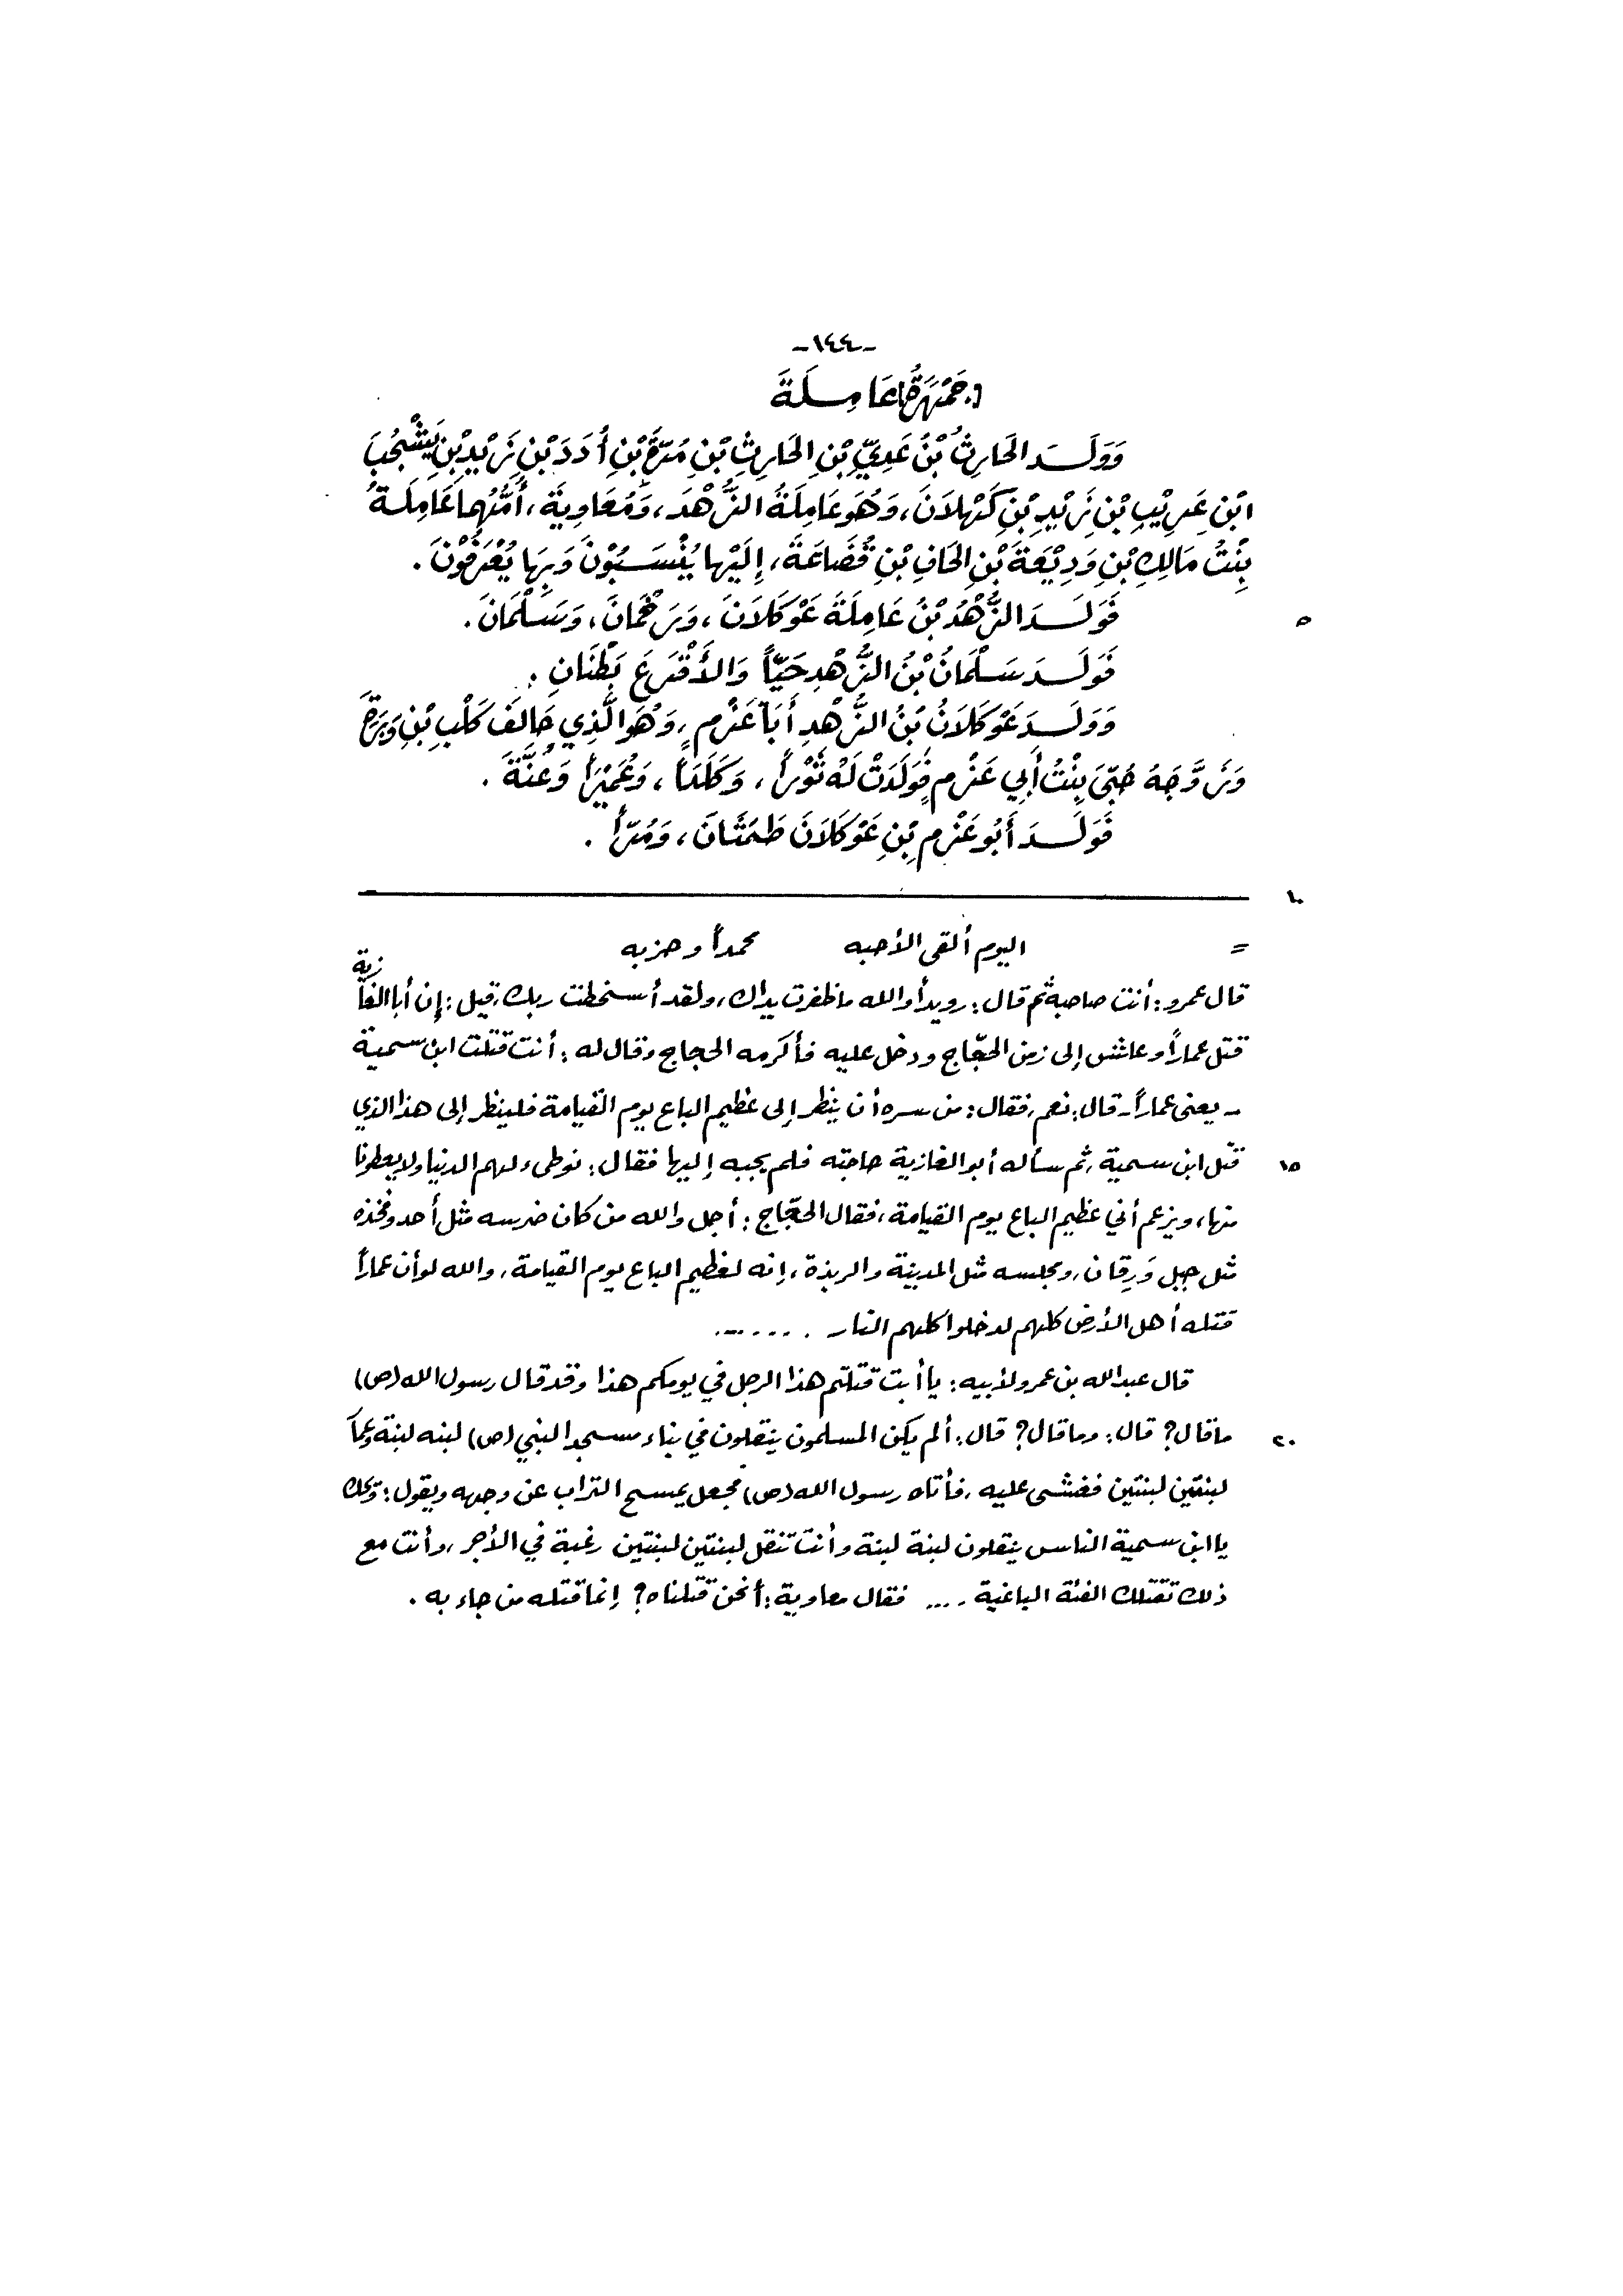 -١٤٤-
جَمْهَرَةُ عَامِلَةَ
وَوَلَدَ الحَارِثُ بْنُ عَدِيِّ بْنِ الحَارِثِ بْنِ مُرَّةَ بْنِ أُدَدَ بْنِ زَيْدِ بْنِ يَشْجُبَ
ابْنِ عَرِيْبِ بْنِ زَيْدِ بْنِ كَهْلَانَ، وَهُوَ عَامِلَةُ الزُّهْدَ، وَمُعَاوِيَةَ، أُمُّهُما عَامِلَةُ
بِنْتُ مَالِكِ بْنِ وَدِيْعَةَ بْنِ الحَافِ بْنِ قُضَاعَةَ، إِلَيْها يُنْسَبُوْنَ وَبِهَا يُعْرَفُوْنَ.
٥
فَوَلَدَ الزُّهْدُ بْنُ عَامِلَةَ عَوْكَلَانَ، وَرَحْمَانَ، وَسَلْمَانَ.
فَوَلَدَ سَلْمَانُ بْنُ الزُّهْدِ حَيّاً وَالأَقْرَعَ بَطْنَانِ.
وَوَلَدَ عَوْكَلَانُ بْنُ الزُّهْدِ أَبَا عَزْمٍ، وَهُوَ الَّذِي حَالَفَ كَلْبِ بْنِ وَبَرَةَ
وَزَوَّجَهُ حُبَّى بِنْتُ أَبِي عَزْمٍ فَوَلَدَتْ لَهُ ثَوْراً، وَكَلَداً، وَعُمَيْراً وَعُنَّةَ.
فَوَلَدَ أَبُو عَزْمِ بْنِ عَوْكَلَانَ طَمَثَانَ، وَمُرّاً.
١٠
= اليوم ألقى الأحبه محمداً وحزبه
قال عمرو: أنت صاحبه ثم قال: رويداً والله ما ظفرت يداك، ولقد أسخطت ربك، قيل: إن أبا الغازية
قتل عماراً وعاش إلى زمن الحجّاج ودخل عليه فأكرمه الحجاج وقال له: أنت قتلت ابن سمية
- يعنى عماراً - قال: نعم، فقال: من سره أن ينظر إلى عظيم الباع يوم القيامة فلينظر إلى هذا الذي
١٥
قتل ابن سمية، ثم سأله أبو الغازية حاجته فلم يجبه إليها فقال: نوطىء لهم الدنيا ولا يعطونا
منها، ويزعم أني عظيم الباع يوم القيامة، فقال الحجّاج: أجل والله من كان ضرسه مثل أحد وفخذه
مثل جبل وَرِقان، ومجلسه مثل المدينة والربذة، إنه لعظيم الباع يوم القيامة، والله لو أن عماراً
قتله أهل الأرض كلهم لدخلوا كلهم النار .......
قال عبد الله بن عمرو لأبيه: يا أبت قتلتم هذا الرجل في يومكم هذا وقد قال رسول الله (ص)
٢٠
ما قال؟ قال: وما قال؟ قال: ألم يكن المسلمون ينقلون في بناء مسجد النبي (ص) لبنه لبنة وعمار
لبنتين لبنتين فغشى عليه، فأتاه رسول الله (ص) فجعل يمسح التراب عن وجهه ويقول: ويحك
يا ابن سمية الناس ينقلون لبنة لبنة وأنت تنقل لبنتين لبنتين رغبة في الأجر، وأنت مع
ذلك تقتلك الفئة الباغية .... فقال معاوية: أنحن قتلناه؟ إنما قتله من جاء به.